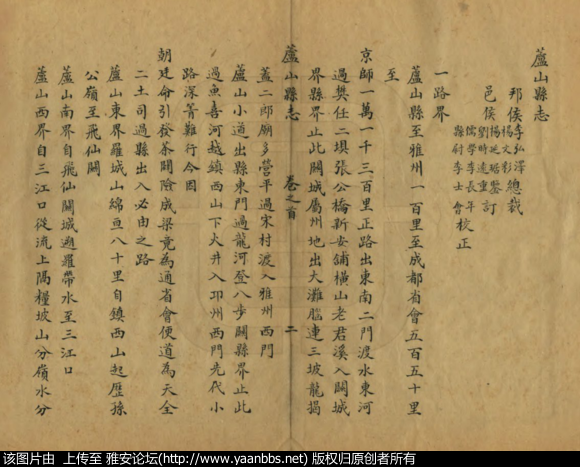 蘆山縣志
邦侯李弘澤總裁
楊文彩
邑侯楊廷琚鑒訂
劉時遠重
儒學李長年
縣尉李士會校正
一路界
蘆山縣至雅州一百里至成都省會五百五十里
至
京師一萬一千三百里正路出東南二門渡水東河
過樊任二壩張公橋新安舖橫山老君溪入關城
界縣界止此關城屬州地出大灘腦連三坡龍揭
蘆山縣志 卷之首 二
蓋二郎廟多營平過宋村渡入雅州西門
蘆山小道出縣東門過龍河登八步關縣界止此
過魚喜河越鎮西山下大井入邛州西門先代小
路深菁難行今因
朝廷命引發茶關險成梁竟為通省會便道為天全
二土司過縣出入必由之路
蘆山東界羅城山綿亘八十里自鎮西山起歷孫
公嶺至飛仙關
蘆山南界自飛仙關城迴羅帶水至三江口
蘆山西界自三江口從流上隔糧坡山分嶺水分
该图片由 上传至 雅安论坛(http://www.yaanbbs.net) 版权归原创者所有